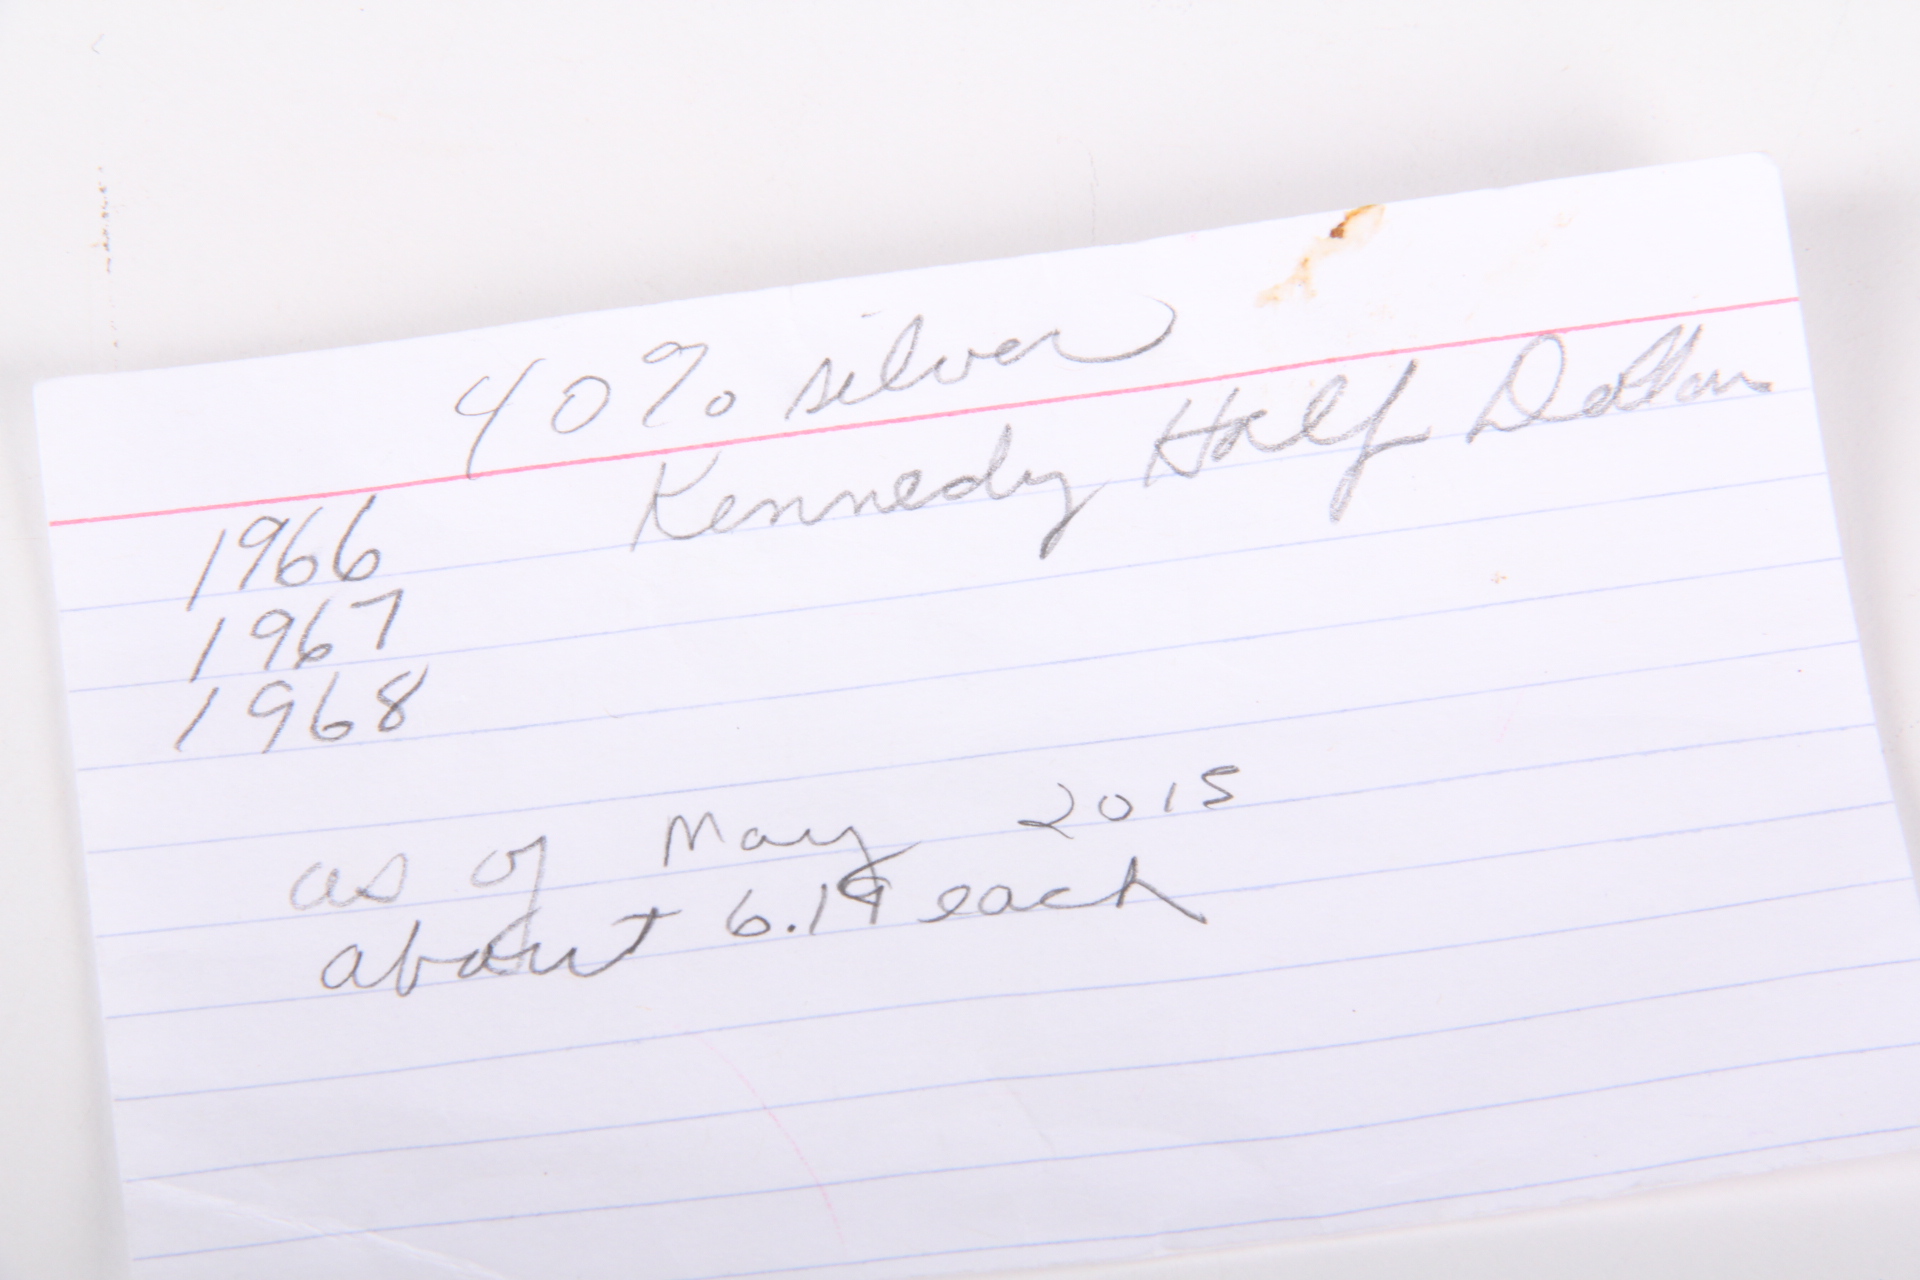 40% silver
Kennedy Half Dollars
1966
1967
1968
as of May 2015
about 6.19 each